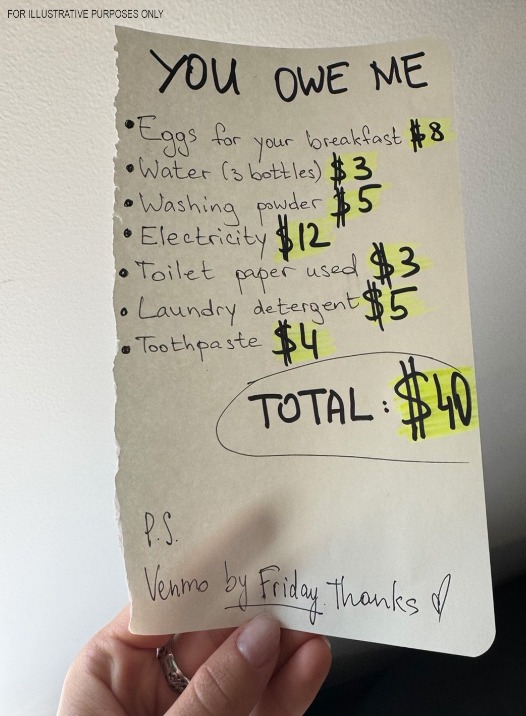 FOR ILLUSTRATIVE PURPOSES ONLY
YOU OWE ME
• Eggs for your breakfast $8
• Water (3 bottles) $3
• Washing powder $5
• Electricity $12
• Toilet paper used $3
• Laundry detergent $5
• Toothpaste $4
TOTAL: $40
P.S.
Venmo by Friday. Thanks